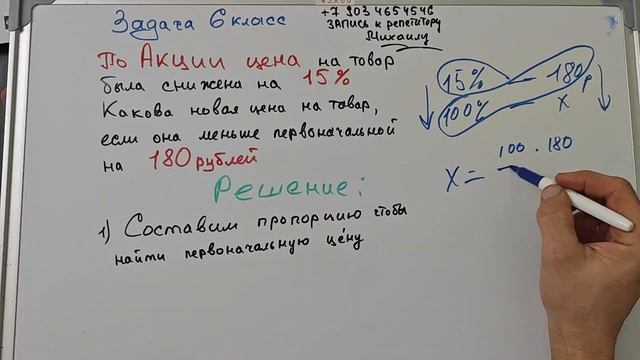 Задача 6 класс
+7 903 4654546
ЗАПИСЬ К РЕПЕТИТОРУ
Михаилу
По Акции цена на товар
была снижена на 15%
Какова новая цена на товар,
если она меньше первоначальной
на 180 рублей
Решение:
1) Составим пропорцию чтобы
найти первоначальную цену
15% — 180 р
100% — x
x = 100 · 180